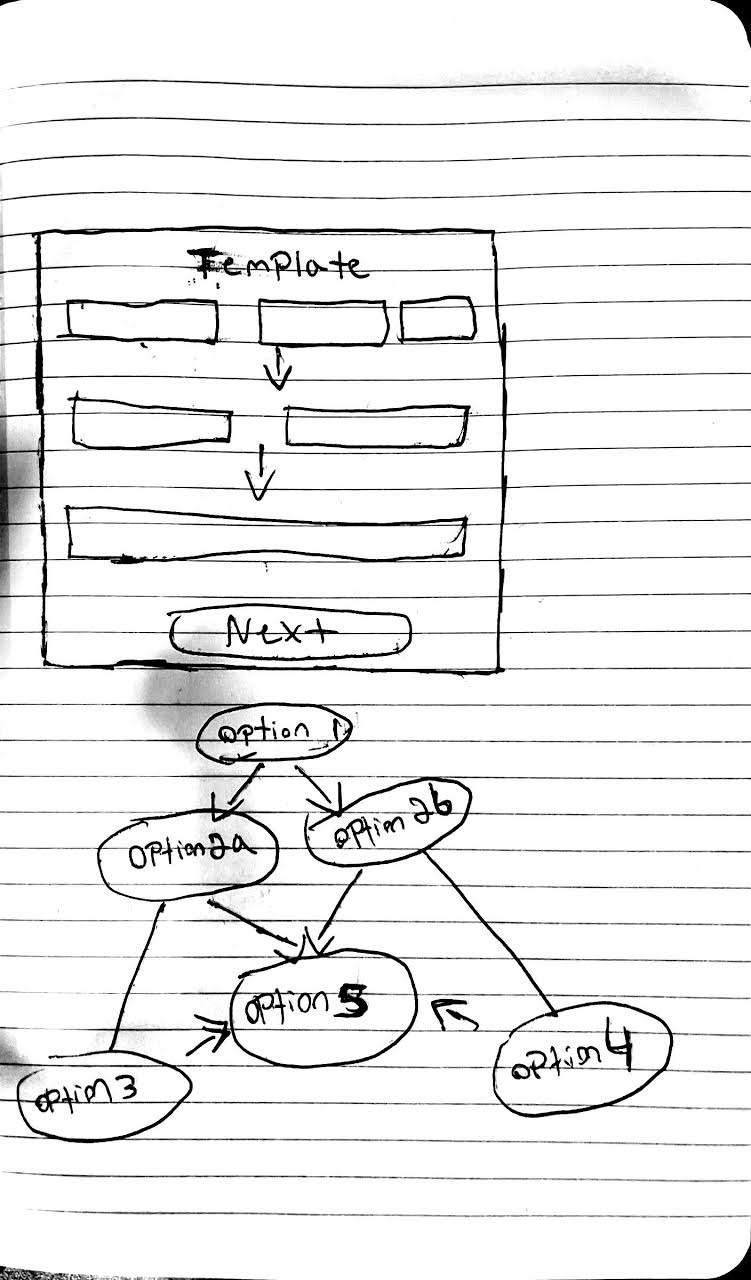 Template
Next
option 1
option 2a
option 2b
option 5
option 3
option 4